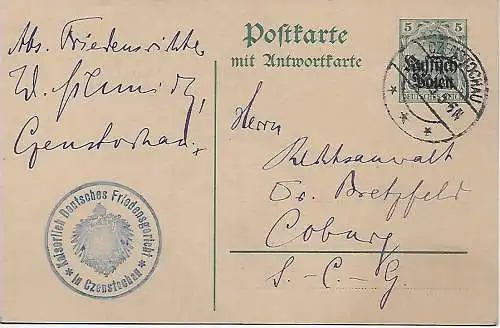 Abs. Friedensrichter
W. Schmidt,
Czenstochau
Postkarte
mit Antwortkarte
5 5
Russisch-
Polen
DEUTSCHES REICH
CZENSTOCHAU
Herrn
Rechtsanwalt
Dr. Bretzfeld
Coburg
S.-C.-G.
Kaiserlich Deutsches Friedensgericht
* in Czenstochau *